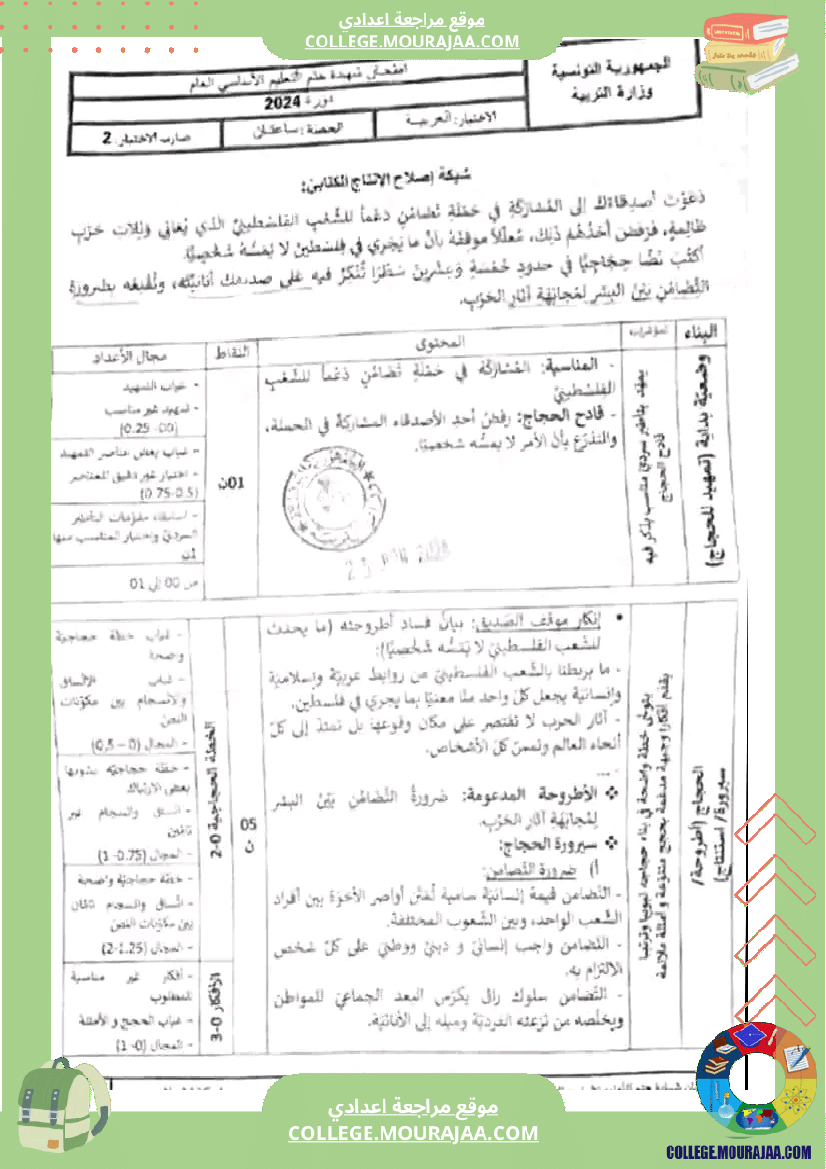 موقع مراجعة اعدادي
COLLEGE.MOURAJAA.COM
الجمهورية التونسية
وزارة التربية
امتحان شهادة ختم التعليم الأساسي العام
دورة 2024
الاختبار: العربية
الحصة: ساعتان
ضارب الاختبار: 2
شبكة إصلاح الإنتاج الكتابيّ:
دَعَوْتَ أصدقاءَكَ إلى المُشارَكَةِ في حَمْلَةِ تَضَامُنٍ دَعْماً للشَّعْبِ الفلسطينيِّ الذي يُعَاني وَيْلاتِ حَرْبٍ
ظَالِمَةٍ، فَرَفَضَ أحَدُهُم ذلِكَ، مُعَلِّلاً موقفَهُ بأنَّ ما يَجْرِي في فِلسطينَ لا يَمَسُّهُ شَخْصِيًّا.
أكتُبْ نَصًّا حِجَاجِيًّا في حدودِ خَمْسَةٍ وَعِشْرِينَ سَطْرًا تُنْكِرُ فيه على صديقك أنانيّتَه، وتُقْنِعُه بضرورَةِ
التَّضامُنِ بَيْنَ البشرِ لمُجابَهَةِ آثارِ الحَرْبِ.
البناء
المؤشرات
المحتوى
النقاط
مجال الأعداد
وضعيّة بداية (تمهيد للحجاج)
يمهّد بتأطير سرديّ مناسب يذكر فيه
قادح الحجاج
- المناسبة: المُشَارَكَةُ في حَمْلَةِ تَضَامُنٍ دَعْماً للشَّعْبِ
الفِلسْطِينيّ
- قادح الحجاج: رفض أحدِ الأصدقاء المشاركةَ في الحملة،
والتذرّع بأن الأمر لا يمسّه شخصيّا.
01ن
- غياب التمهيد
- تمهيد غير مناسب
(0.25 -00)
- غياب بعض عناصر التمهيد
- اختيار غير دقيق للعناصر
(0.75-0.5)
- استيفاء مقوّمات التأطير
السرديّ واختيار المناسب منها
01
من 00 إلى 01
الحجاج (أطروحة/
سيرورة/ استنتاج)
يتوخّى خطّة واضحة في بناء حجاجه تبويبا وترتيبا
يقدّم أفكارا وجيهة مدعّمة بحجج متنوّعة وأمثلة ملائمة
• إنكار موقف الصّديق: بيانُ فسادِ أطروحته (ما يحدث
للشعب الفلسطينيّ لا يَمَسُّه شَخْصِيًّا):
- ما يربطنا بالشّعب الفلسطينيّ من روابط عربيّة وإسلاميّة
وإنسانيّة يجعل كلّ واحد منّا معنيّا بما يجري في فلسطين.
- آثار الحرب لا تقتصر على مكان وقوعها بل تمتدّ إلى كلّ
أنحاء العالم وتمسّ كلّ الأشخاص.
....
❖ الأطروحة المدعومة: ضرورةُ التَّضَامُنِ بَيْنَ البشرِ
لِمُجَابَهَةِ آثارِ الحَرْبِ.
❖ سيرورة الحجاج:
أ) ضرورة التّضامن:
- التّضامن قيمة إنسانيّة سامية تُمَتِّنُ أواصر الأخوّة بين أفراد
الشّعب الواحد، وبين الشّعوب المختلفة.
- التّضامن واجب إنسانيّ و دينيّ ووطنيّ على كلّ شخص
الالتزام به.
- التّضامن سلوك راق يكرّس البعد الجماعيّ للمواطن
ويخلّصه من نزعته الفرديّة وميله إلى الأنانيّة.
05
ن
الخطّة الحجاجية 0-2
الأفكار 0-3
- غياب خطّة حجاجيّة
وضحة
- غياب الاتّساق
والانسجام بين مكوّنات
النصّ
- المجال (0 – 0,5)
- خطّة حجاجيّة يشوبها
بعض الارتباك
- اتّساق وانسجام غير
تامّين
- المجال (0.75- 1)
- خطّة حجاجيّة واضحة
- اتّساق وانسجام تامّان
بين مكوّنات النصّ
- المجال (1.25-2)
- أفكار غير مناسبة
للمطلوب
- غياب الحجج والأمثلة
- المجال (0- 1)
موقع مراجعة اعدادي
COLLEGE.MOURAJAA.COM
COLLEGE.MOURAJAA.COM